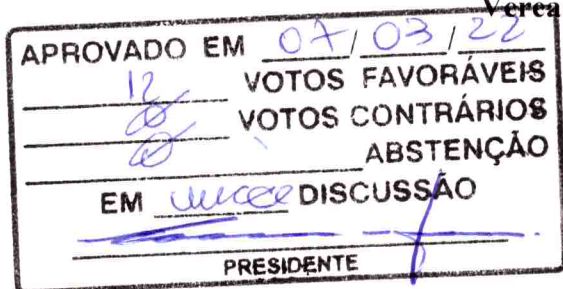 Verea
APROVADO EM 07/03/22
12 VOTOS FAVORÁVEIS
Ø VOTOS CONTRÁRIOS
Ø ABSTENÇÃO
EM única DISCUSSÃO
PRESIDENTE